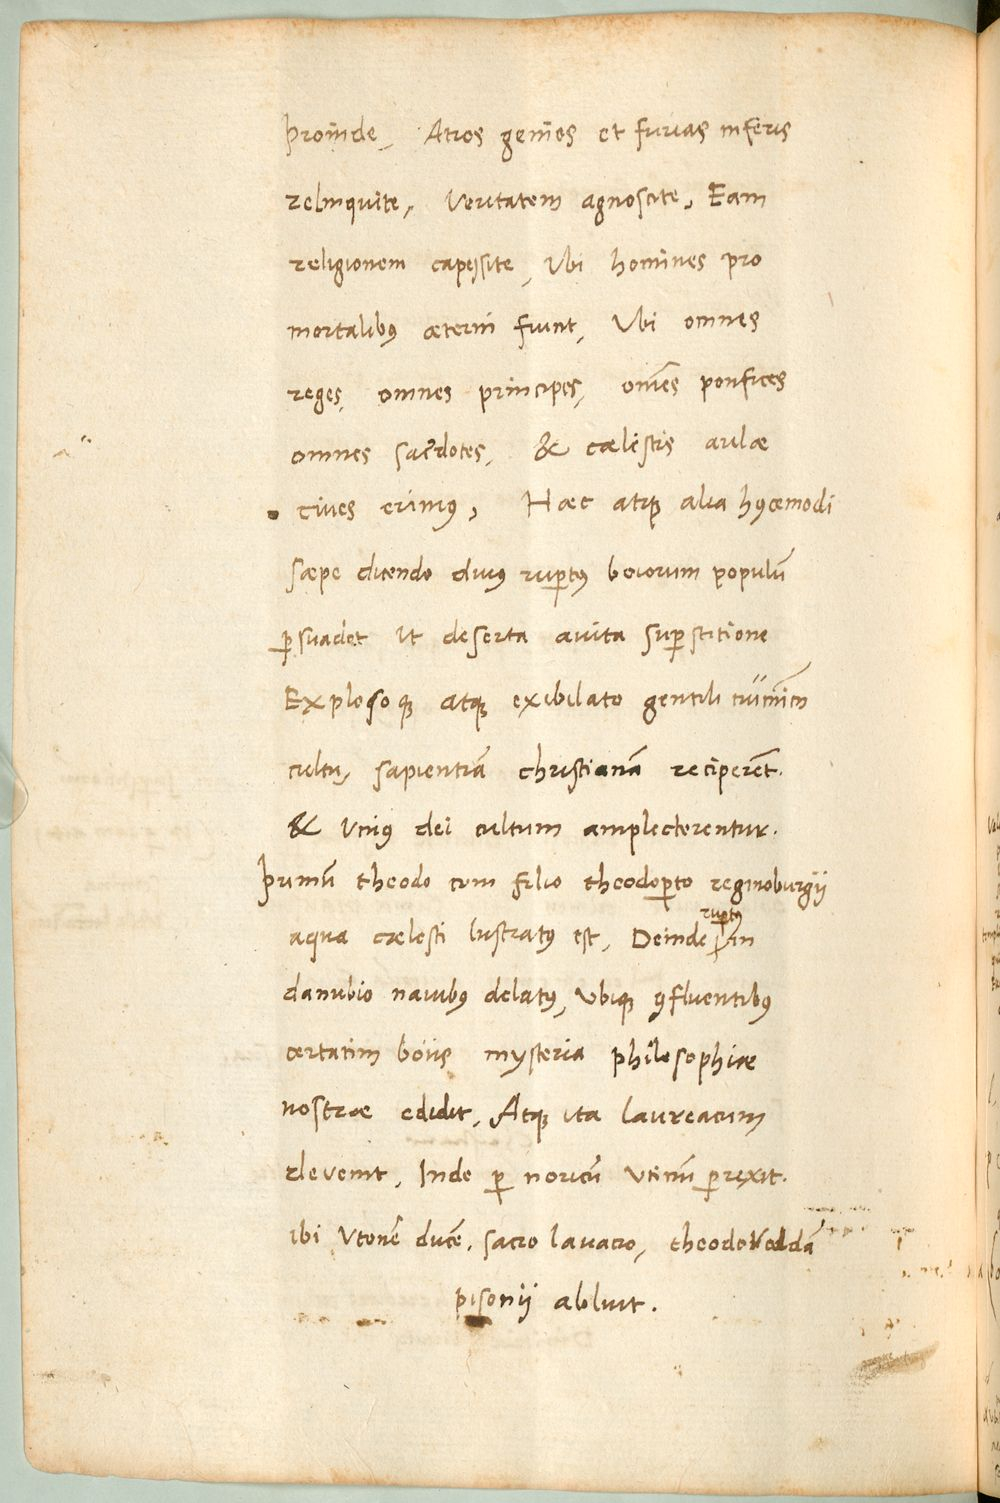 proinde, Atros genios et furias inferis
relinquite, Veritatem agnoscite, Eam
religionem capessite, Vbi homines pro
mortalibꝰ æterni fiunt, Vbi omnes
reges, omnes principes, om̄es ponfices
omnes sac̃dotes, & cælestis aulæ
cives erimꝰ, Hæc atqꝫ alia hꝰcemodi
sæpe dicendo divꝰ ruꝑtꝰ boiorum populū
ꝑsuadet ut deserta avita suꝑstitione
Explosoqꝫ atqꝫ exibilato gentili
cultu, sapientiā christianā reciperēt.
& vniꝰ dei cultum amplecterentur.
primū theodo cum filio theodoꝑto reginoburgii
aqua cælesti lustratꝰ est, Deinde ruꝑtꝰ in
danubio navibꝰ delatꝰ, Vbiqꝫ ꝯfluentibꝰ
certatim boiis mysteria philosophiæ
nostræ edidit, Atqꝫ ita laureacum
devenit, Inde ꝑ noricū vtinū ꝑrexit.
ibi Vtonē ducē, sacro lavacro, theodovaldā
pisonii abluit.